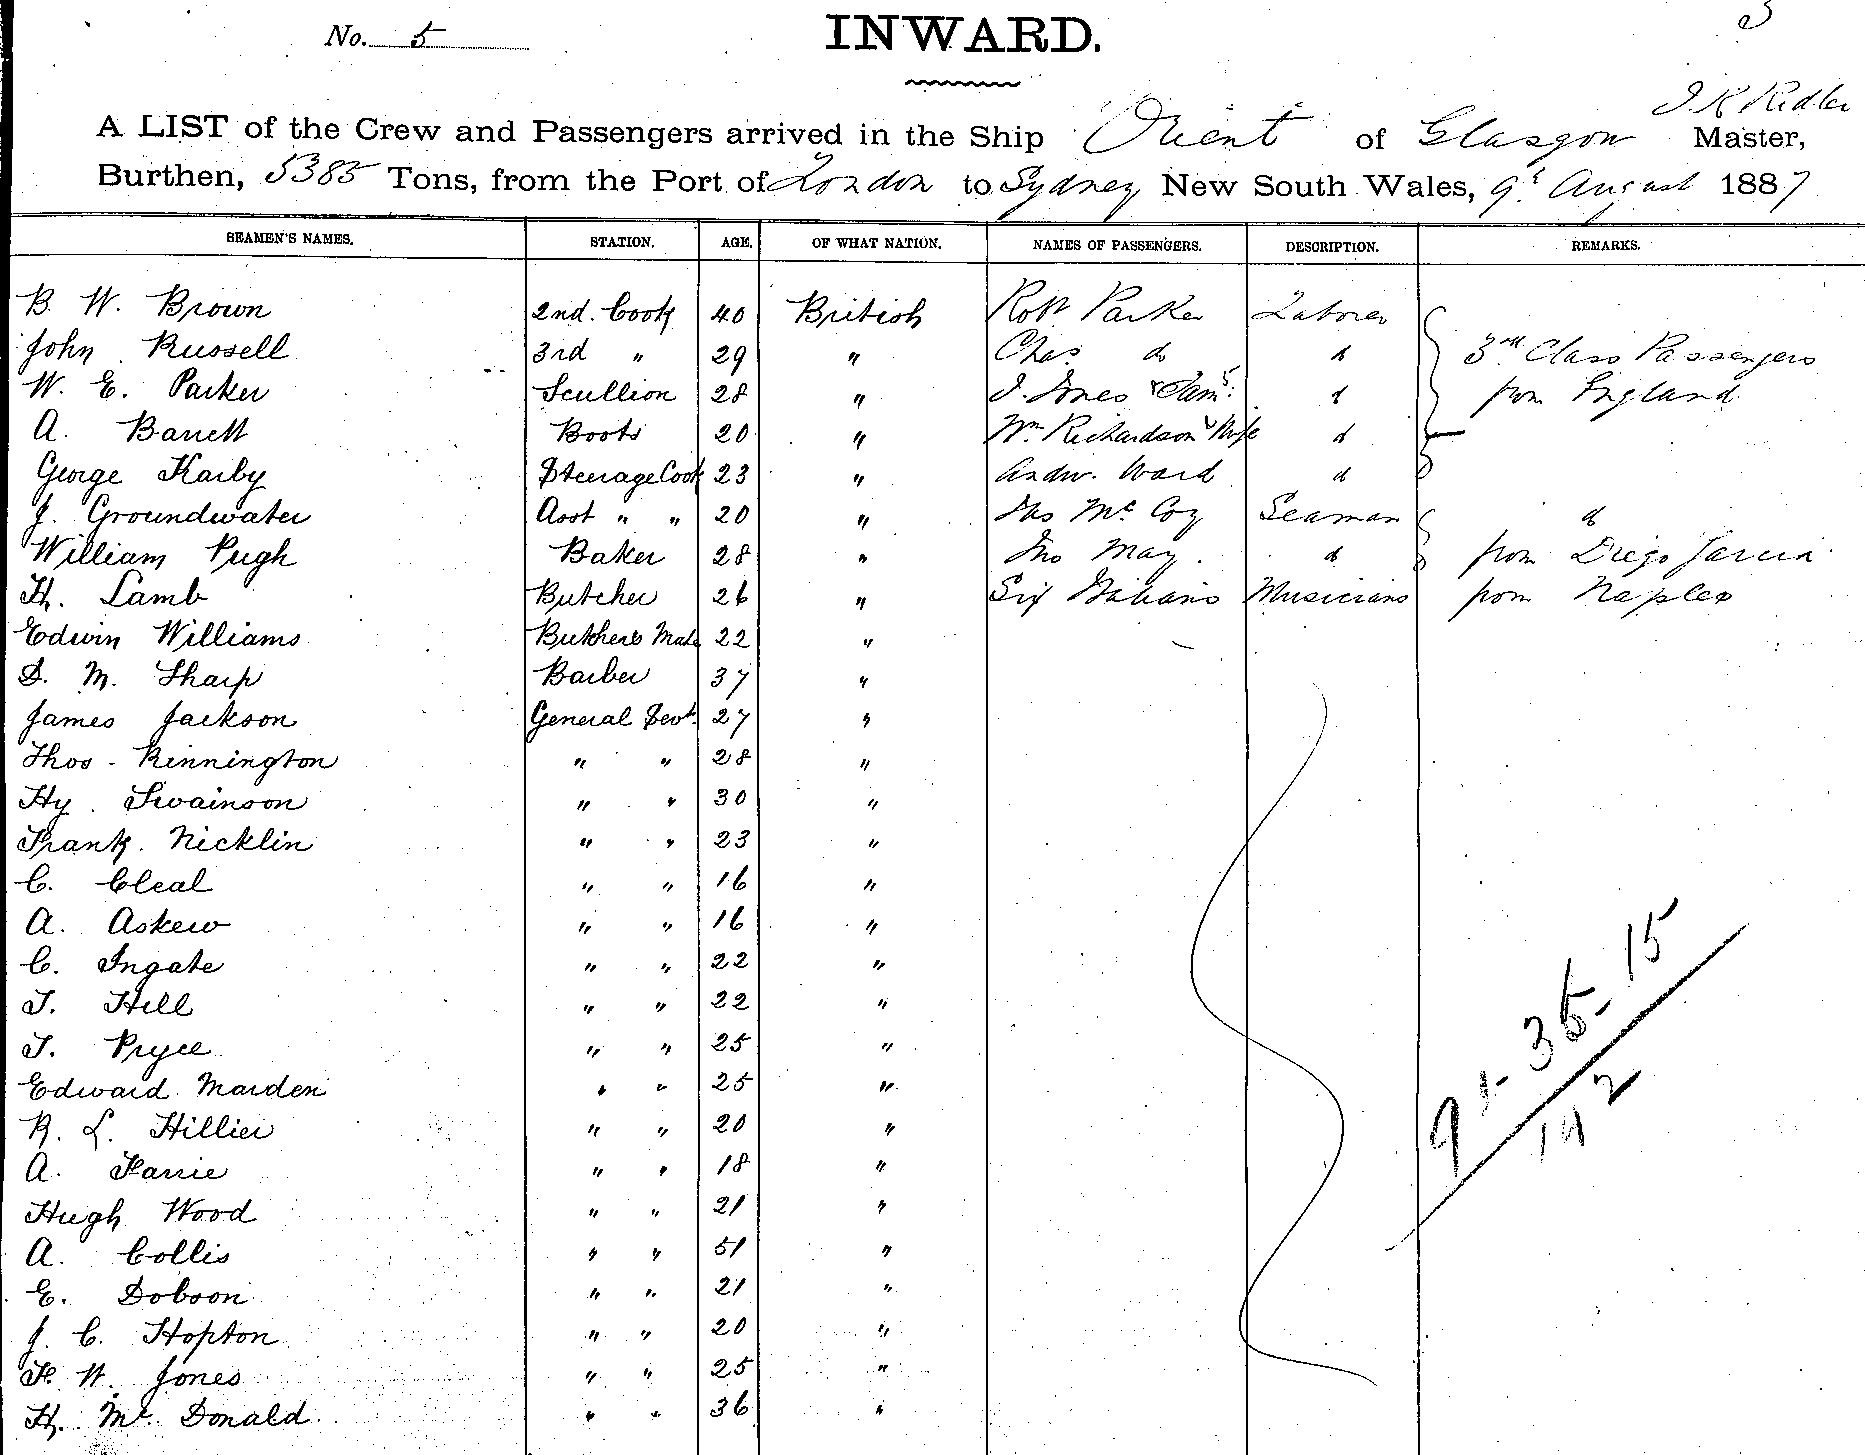 No. 5
INWARD.
J K Ridler
A LIST of the Crew and Passengers arrived in the Ship Orient of Glasgow Master,
Burthen, 5385 Tons, from the Port of London to Sydney New South Wales, 9t August 1887
SEAMEN'S NAMES. STATION. AGE. OF WHAT NATION. NAMES OF PASSENGERS. DESCRIPTION. REMARKS.
B. W. Brown 2nd. Cook 40 British Robt Parker Laborer
John Russell 3rd " 29 " Chas do do 3rd Class Passengers
W. E. Parker Scullion 28 " J. Jones & Fam5. d from England
A. Barrett Boots 20 " Wm Richardson & Wife d
George Karby Steerage Cook 23 " Andw. Ward d
J. Groundwater Asst " " 20 " Jas McCoy Seaman do
William Pugh Baker 28 " Jno May. d from Diego Garcia
H. Lamb Butcher 26 " Six Italians Musicians from Naples
Edwin Williams Butchers Mate 22 "
S. M. Sharp Barber 37 "
James Jackson General Sevt. 27 "
Thos. Rinnington " " 28 "
Hy. Swainson " " 30 "
Frank. Nicklin " " 23 "
C. Cleal " " 16 "
A. Askew " " 16 "
C. Ingate " " 22 "
T. Hill " " 22 "
T. Pryce " " 25 "
Edward Marden " " 25 "
R. L. Hillier " " 20 "
A. Farrie " " 18 "
Hugh Wood " " 21 "
A. Collis " " 51 "
E. Dobson " " 21 "
J. C. Hopton " " 20 "
F. W. Jones " " 25 "
H. Mc Donald " " 36 "